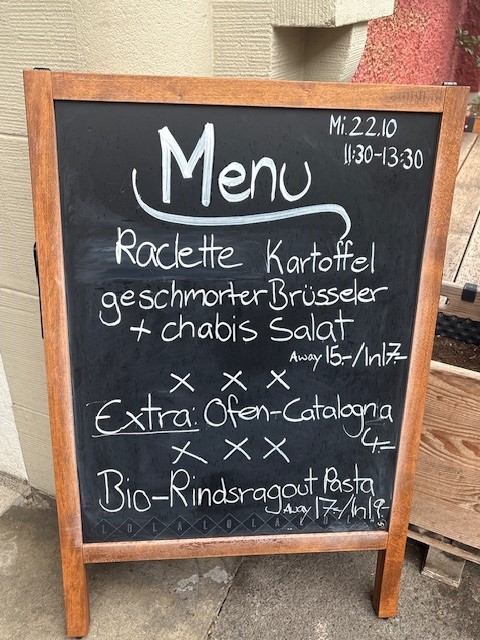 Mi. 22.10
11:30-13:30
Menu
Raclette Kartoffel
geschmorter Brüsseler
+ chabis Salat
Away 15.-/In 17.-
x x x
Extra: Ofen-Catalogna
4.-
x x x
Bio-Rindsragout Pasta
Away 17.-/In 19.-